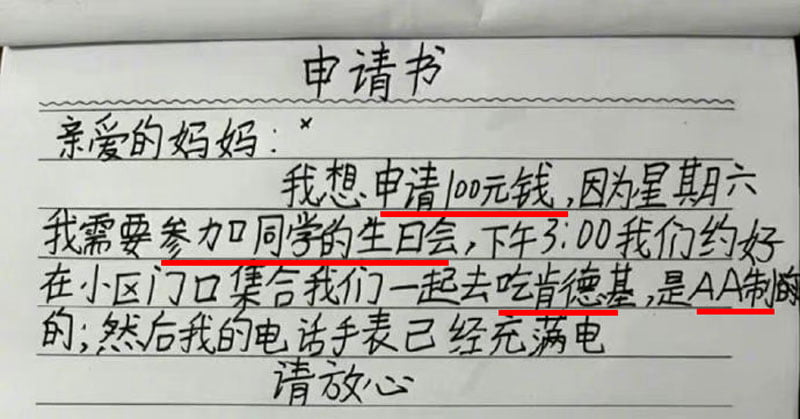 申请书
亲爱的妈妈：
我想申请100元钱,因为星期六
我需要参加同学的生日会,下午3:00我们约好
在小区门口集合我们一起去吃肯德基,是AA制的
的;然后我的电话手表已经充满电
请放心